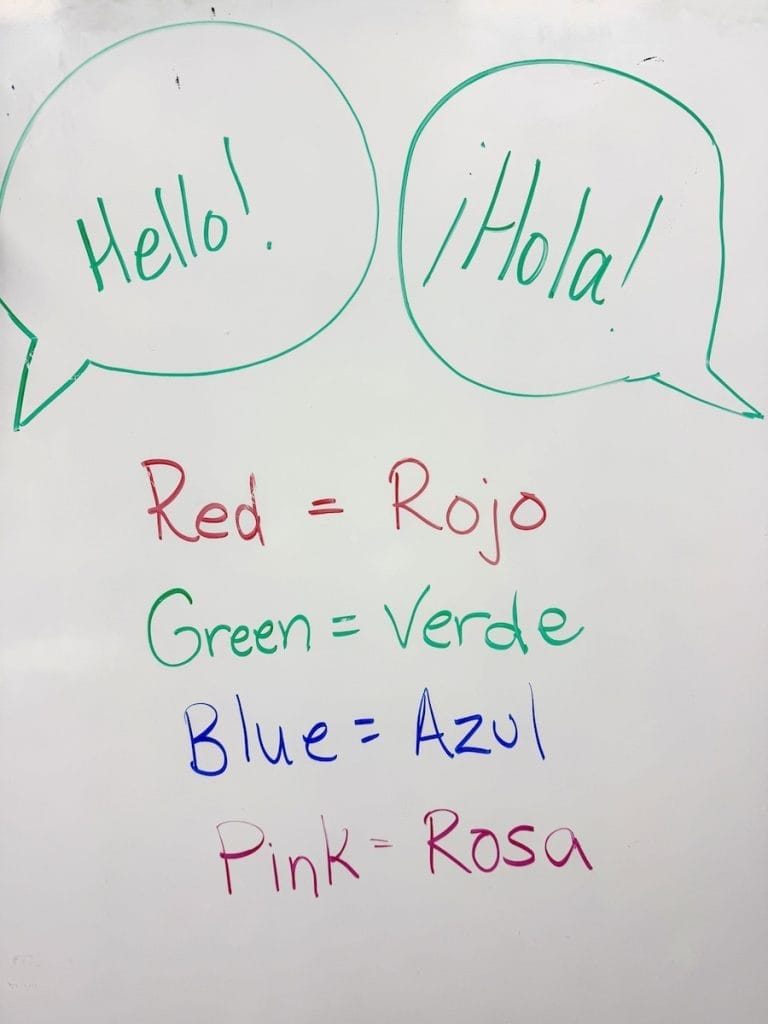 Hello!
¡Hola!
Red = Rojo
Green = Verde
Blue = Azul
Pink = Rosa